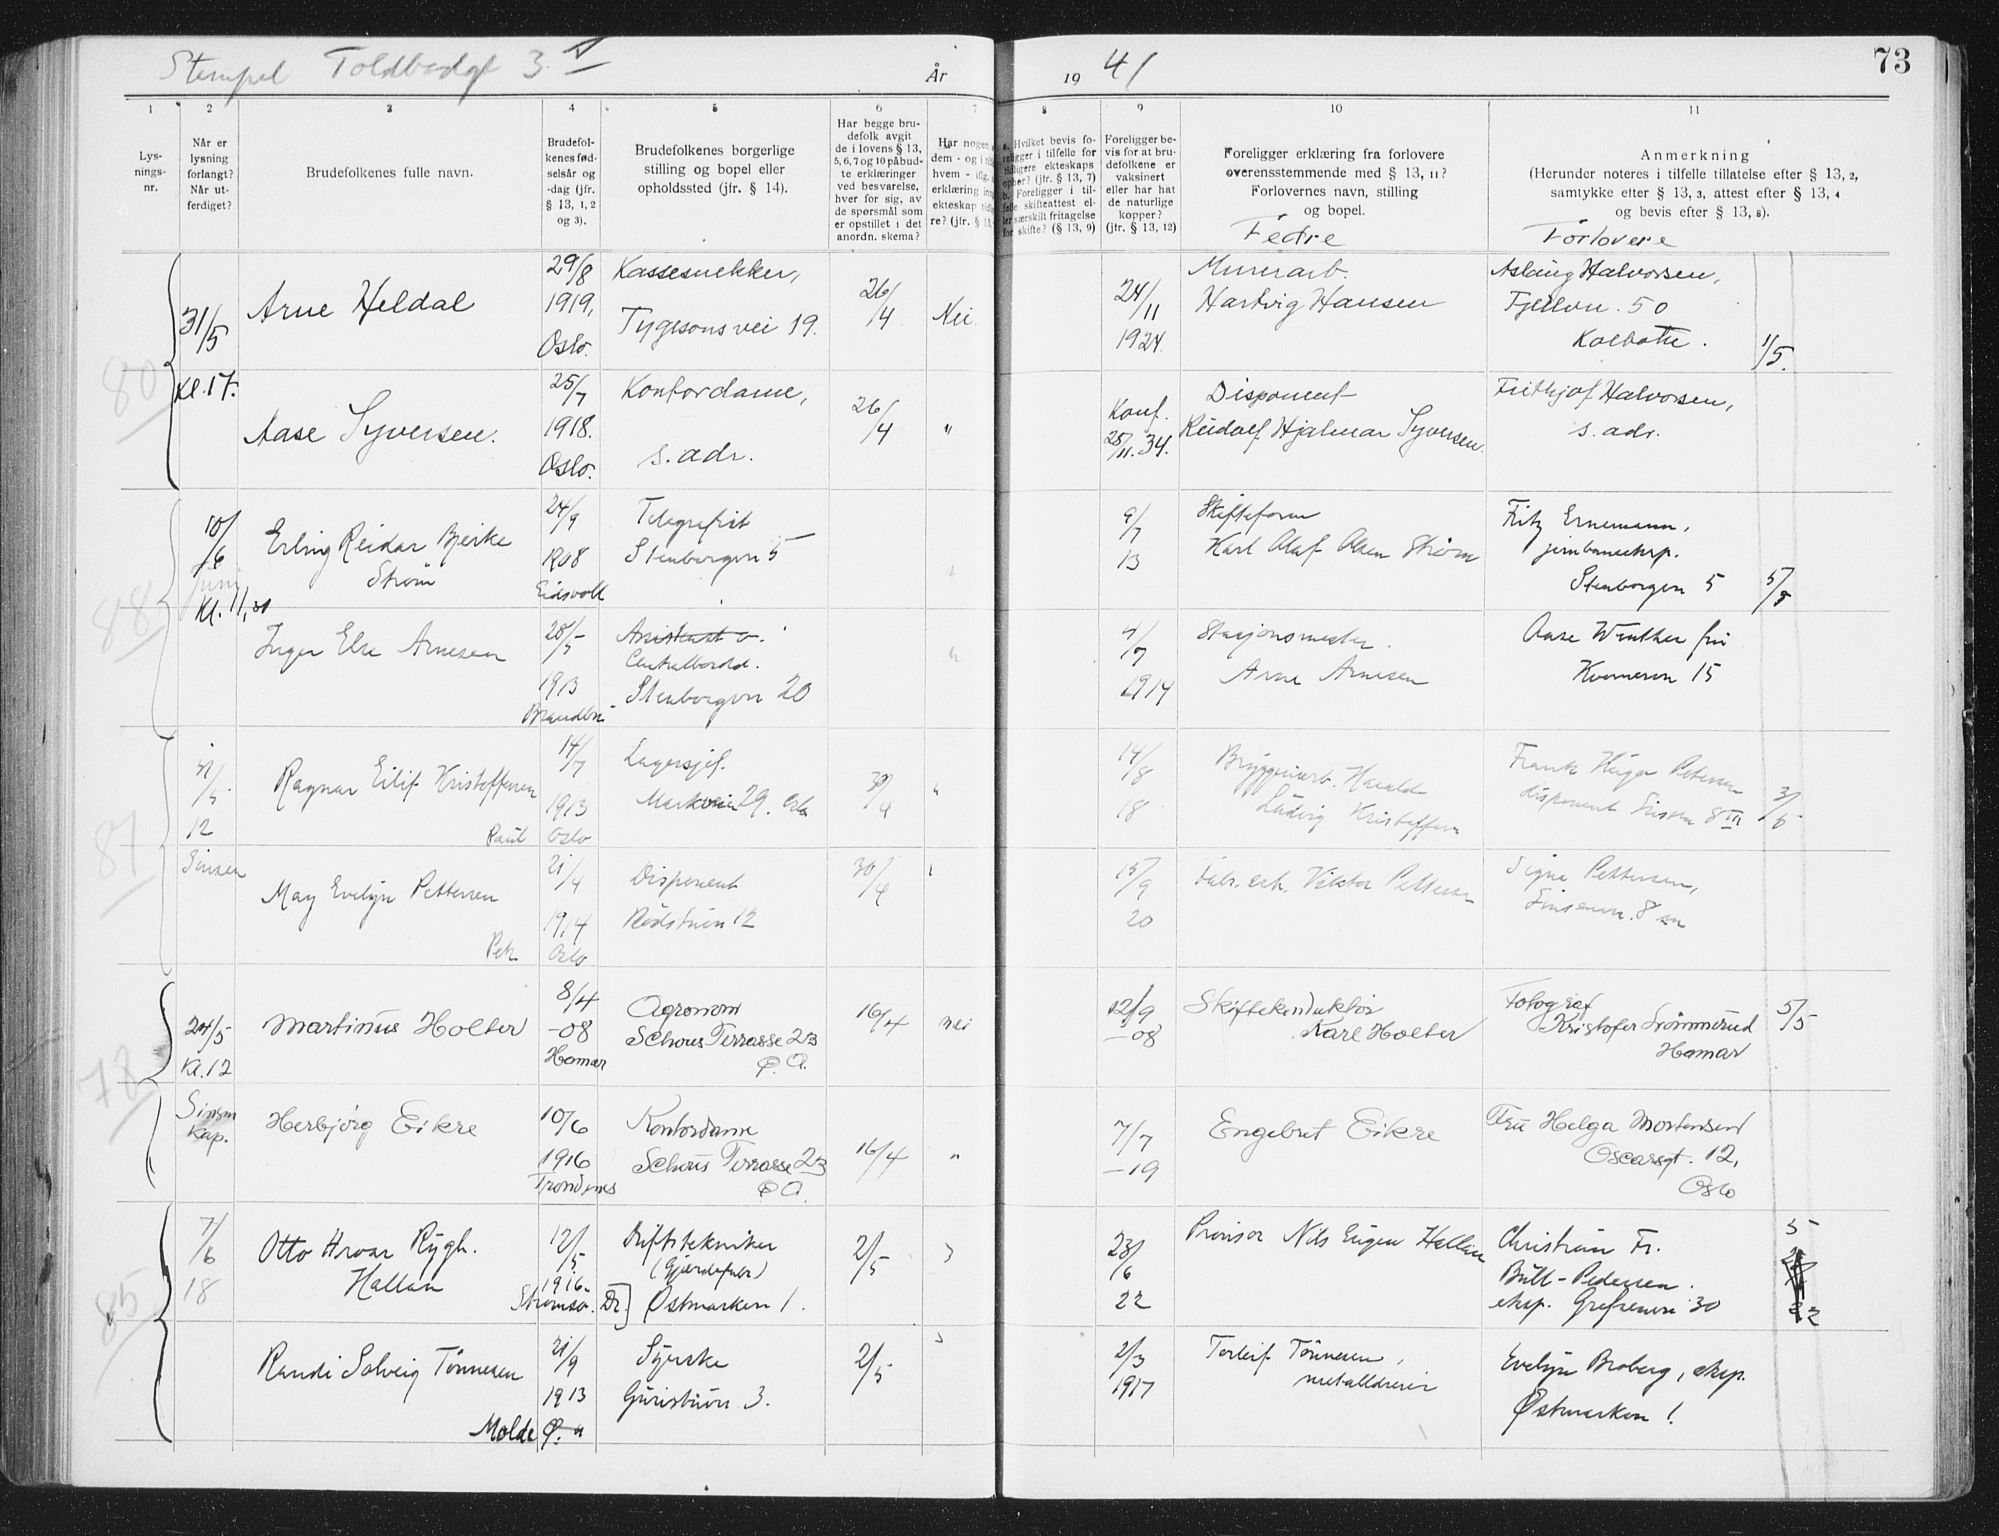 Stempel Toldbodgt 3 II
År
19 41
73
1
2
3
4
5
6
7
8
9
10
11
Lys-
nings-
nr.
Når er
lysning
forlangt?
Når ut-
ferdiget?
Brudefolkenes fulle navn.
Brudefol-
kenes fød-
selsår og
-dag (jfr.
§ 13, 1, 2
og 3).
Brudefolkenes borgerlige
stilling og bopel eller
opholdssted (jfr. § 14).
Har begge bru-
defolk avgit
de i lovens § 13,
5, 6, 7 og 10 påbud-
te erklæringer
ved besvarelse,
hver for sig, av
de spørsmål som
er opstillet i det
anordn. skema?
Har nogen
dem - og i
hvem -
erklæring
ekteskap
re? (jfr. §
Hvilket bevis fo-
religger i tilfelle for
tidligere ekteskaps
ophør? (jfr. § 13, 7)
b. Foreligger i til-
felle skifteattest el-
ler særskilt fritagelse
for skifte? (§ 13, 9)
Foreligger be-
vis for at bru-
defolkene er
vaksinert
eller har hat
de naturlige
kopper?
(jfr. § 13, 12)
Foreligger erklæring fra forlovere
overensstemmende med § 13, 11?
Forlovernes navn, stilling
og bopel.
Fedre
Anmerkning
(Herunder noteres i tilfelle tillatelse efter § 13, 2,
samtykke efter § 13, 3, attest efter § 13, 4
og bevis efter § 13, 8).
Forlovere
80
31/5
Kl. 17.
Arne Heldal
29/8
1919,
Oslo.
Kassesnekker,
Tygesons vei 19.
26/4
Nei.
24/11
1924.
Murerarb.
Hartvig Hansen
Aslaug Halvorsen,
Fjellvn. 50
Kolbotn.
1/5.
Aase Syversen.
25/7
1918.
Oslo.
Kontordame,
s. adr.
26/4
"
Konf.
25/11.34.
Disponent
Rudolf Hjalmar Syversen.
Frithjof Halvorsen,
s. adr.
88
10/6
juni
Kl. 11,30
Erling Reidar Bjerke
Strøm
24/9
1908
Eidsvoll
Telegrafist
Stenborgvn 5
"
9/7
13
Skifteform
Karl Olaf Olsen Strøm
Fritz Ernemann,
jernbaneeksp.
Stenborgvn 5
5/5
Inger Else Arnesen
1913
Assistent v.
Centralbordd.
Stenborgvn 20
"
1914
Stasjonsmester.
Arne Arnesen
Aase Winther fru
Kvernervn 15
87
31/5
12
Sinsen
Ragnar Eilif Kristoffersen
Paul
14/7
1913
Oslo
Lagersjef.
Markveien 29. Oslo
30/4
"
14/8
18
Bryggeriarb. Harald
Ludvig Kristoffersen
Frank Hugo Petersen
disponent Sinsen 8 III
3/5
May Evelyn Pettersen
Pett
21/4
1914
Oslo
Disponent
Rødstuen 12
30/4
15/9
20
Fabr. arb. Viktor Pettersen
Signe Pettersen,
Sinsenvn. 8
78
24/5
Kl. 12
Sinsen
Kap.
Martinus Holter
8/4
-08
Hamar
Agronom
Schous Terrasse 23
Ø. A.
16/4
nei
12/9
-08
Skiftekonduktør
Karl Holter
Fotograf
Kristofer Strømmerud
Hamar
5/5
Herbjørg Eikre
10/6
1916
Trondenes
Kontordame
Schous Terrasse 23
Ø A.
16/4
"
7/7
-19
Engebret Eikre
Fru Helga Mortensen
Oscarsgt. 12,
Oslo
85
7/6
18
Otto Hroar Rygh.
Hallan
12/5
1916.
Strømsø. [Dr.]
Driftstekniker
(Gjærdefabr)
Østmarken 1.
2/5
23/6
22
Provisor Nils Eugen Hallan
Christian Fr.
Bull-Pedersen.
eksp. Grefsenvn 30
5
22
Randi Solveig Tønnesen
21/9
1913
Molde
Syerske
Guristuvn. 3.
2/5
2/3
1917
Torleif Tønnesen,
metalldreier
Evelyn Broberg, eksp.
Østmarken 1.